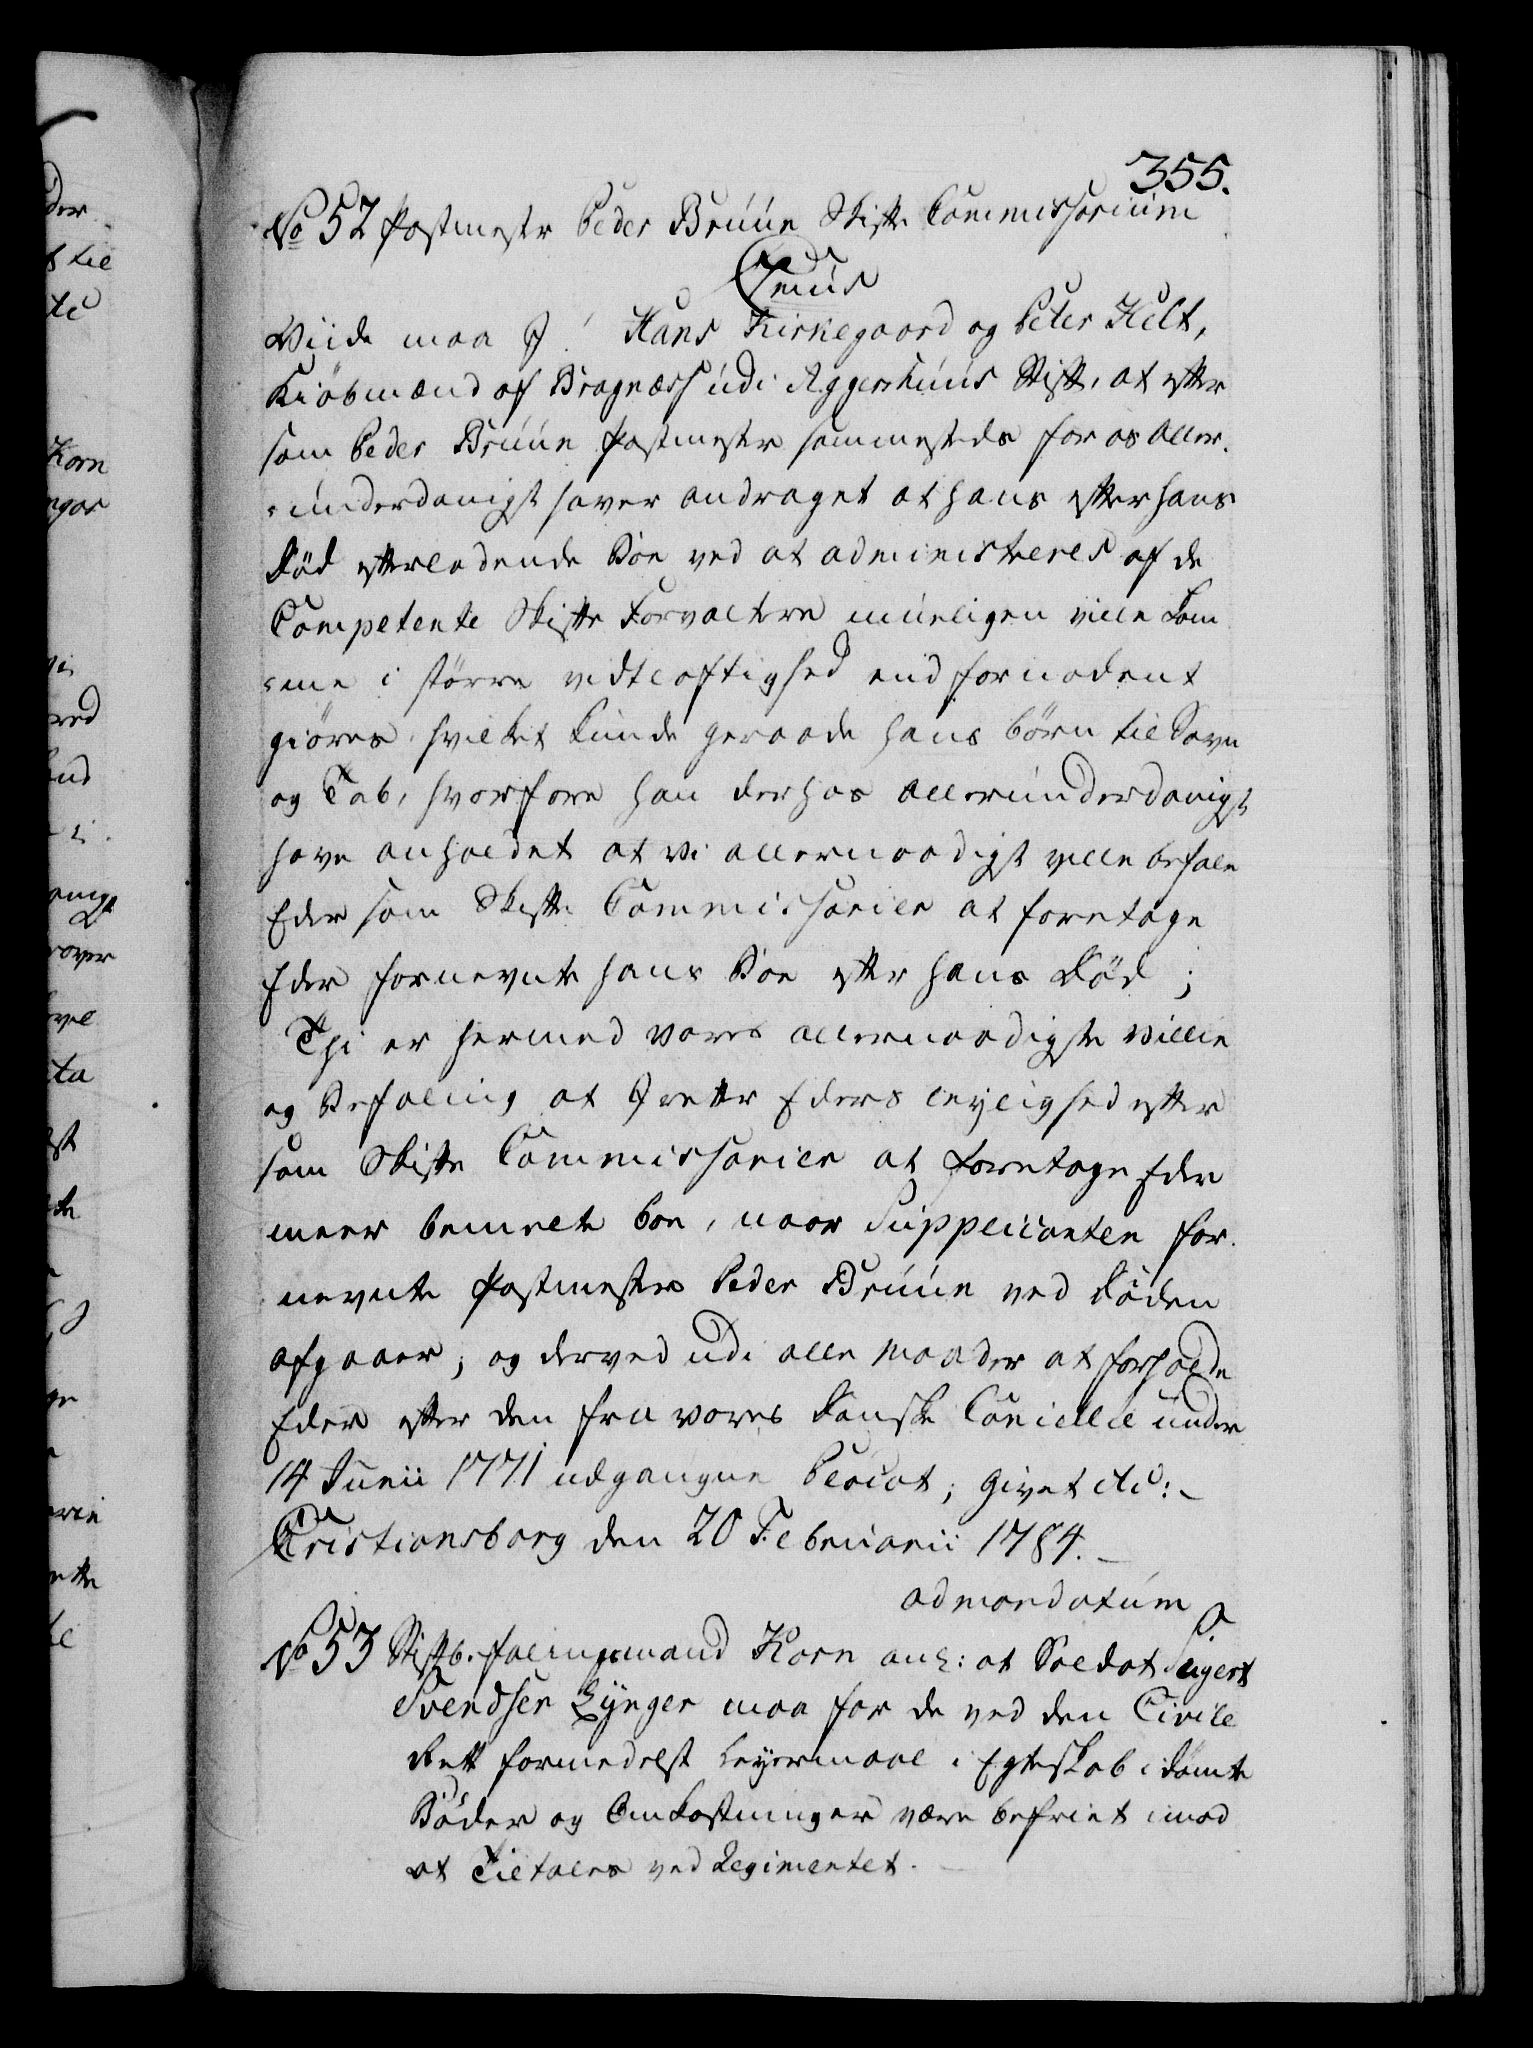 355.
No 52 Postmester Peder Bruun Skifte Commissorium
C 7mus
Viide maa I! Hans Kirkegaard og Peter Kelt,
Kiöbmænd af Bragnæss udi Aggershuus Stift, at efter
som Peder Bruun Postmester sammesteds for os aller-
underdanigst haver andraget at hans efter hans
Död efterladende Boe ved at administreres af de
Competente Skifte Forvaltere mueligen ville kom
me i större vidtloftighed end fornödent
giöres, hvilket kunde geraade hans börn til Savn
og Tab, hvorfore han derhos allerunderdanigst
have anholdet at vi allernaadigst ville befale
Eder som Skifte Commissarier at foretage
Eder fornevnte hans Boe efter hans Död;
Thi er hermed vores allernaadigste villie
og Befaling at I retter Eders leylighed efter
som Skifte Commissarier at foretage Eder
meer bemelte boe, naar Supplicanten for
nevnte Postmester Peder Bruun ved Döden
afgaaer; og derved udi alle Maader at forholde
Eder efter den fra vores Danske Cancellie under
14 Junii 1771 udgangne Placat; Givet etc:
Cristiansborg den 20 Februarii 1784.
ad mandatum
No 53 Stiftbefalingsmand Korn anh: at Soldat Sigert
Svendsen Lynger maa for de ved den Civile
Rett formedelst Leyermaal i Egteskab idömte
Böder og Omkostninger være befriet imod
at Tiltales ved Regimentet.